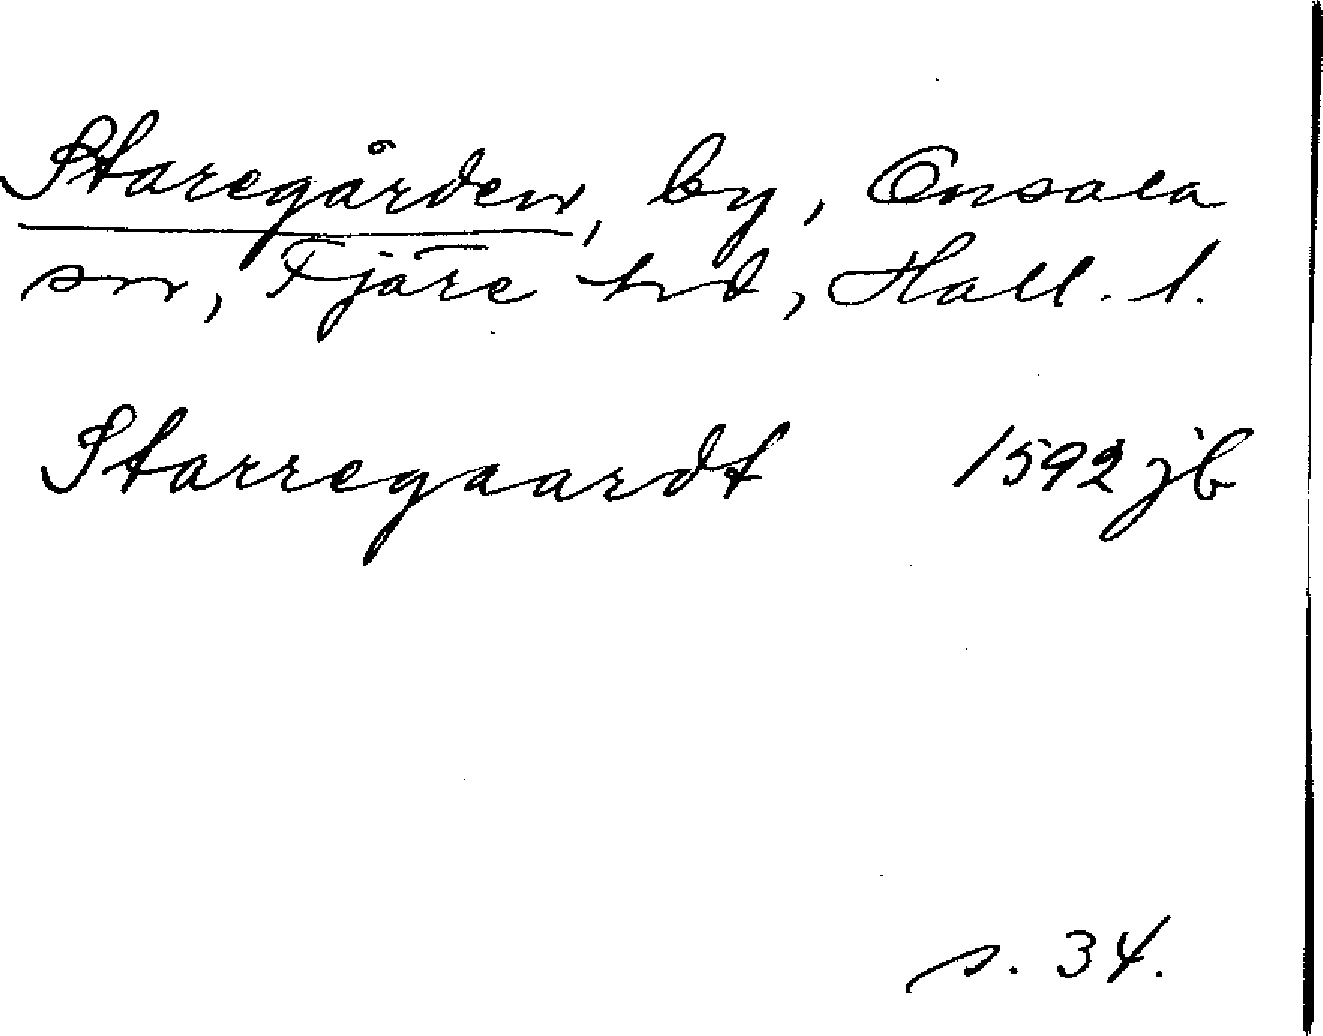 Staregården, by, Onsala
sn, Fjäre hd, Hall. l.
Starregaardt 1592 jb
s. 34.